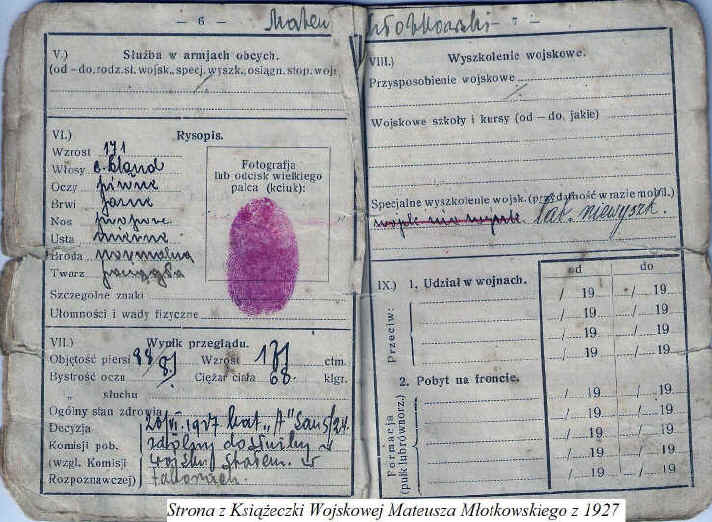 — 6 —
Mateu
V.) Służba w armjach obcych.
(od – do. rodz. sł. wojsk., specj. wyszk., osiągn. stop. wojs
VI.) Rysopis.
Wzrost 171
Włosy c. blond
Oczy piwne
Brwi jasne
Nos
Usta mierne
Broda normalna
Twarz
Szczególne znaki
Ułomności i wady fizyczne
Fotografja
lub odcisk wielkiego
palca (kciuk):
VII.) Wynik przeglądu.
Objętość piersi 88/81 Wzrost 171 ctm.
Bystrość oczu Ciężar ciała 68 klgr.
„ słuchu
Ogólny stan zdrowia
Decyzja
Komisji pob.
(wzgl. Komisji
Rozpoznawczej)
20/VI. 1927 kat „A”
zdolny do służby w
wojsku stałem. w
taborach.
Młotkowski
— 7 —
VIII.) Wyszkolenie wojskowe.
Przysposobienie wojskowe
Wojskowe szkoły i kursy (od – do, jakie)
Specjalne wyszkolenie wojsk. (przydatność w razie mobil.)
niewyszk.
IX.) 1. Udział w wojnach.
Przeciw:
od do
/ 19 / 19
/ 19 / 19
/ 19 / 19
/ 19 / 19
2. Pobyt na froncie.
Formacja
(pułk lub równorz.)
/ 19 / 19
/ 19 / 19
/ 19 / 19
/ 19 / 19
/ 19 / 19
Strona z Książeczki Wojskowej Mateusza Młotkowskiego z 1927